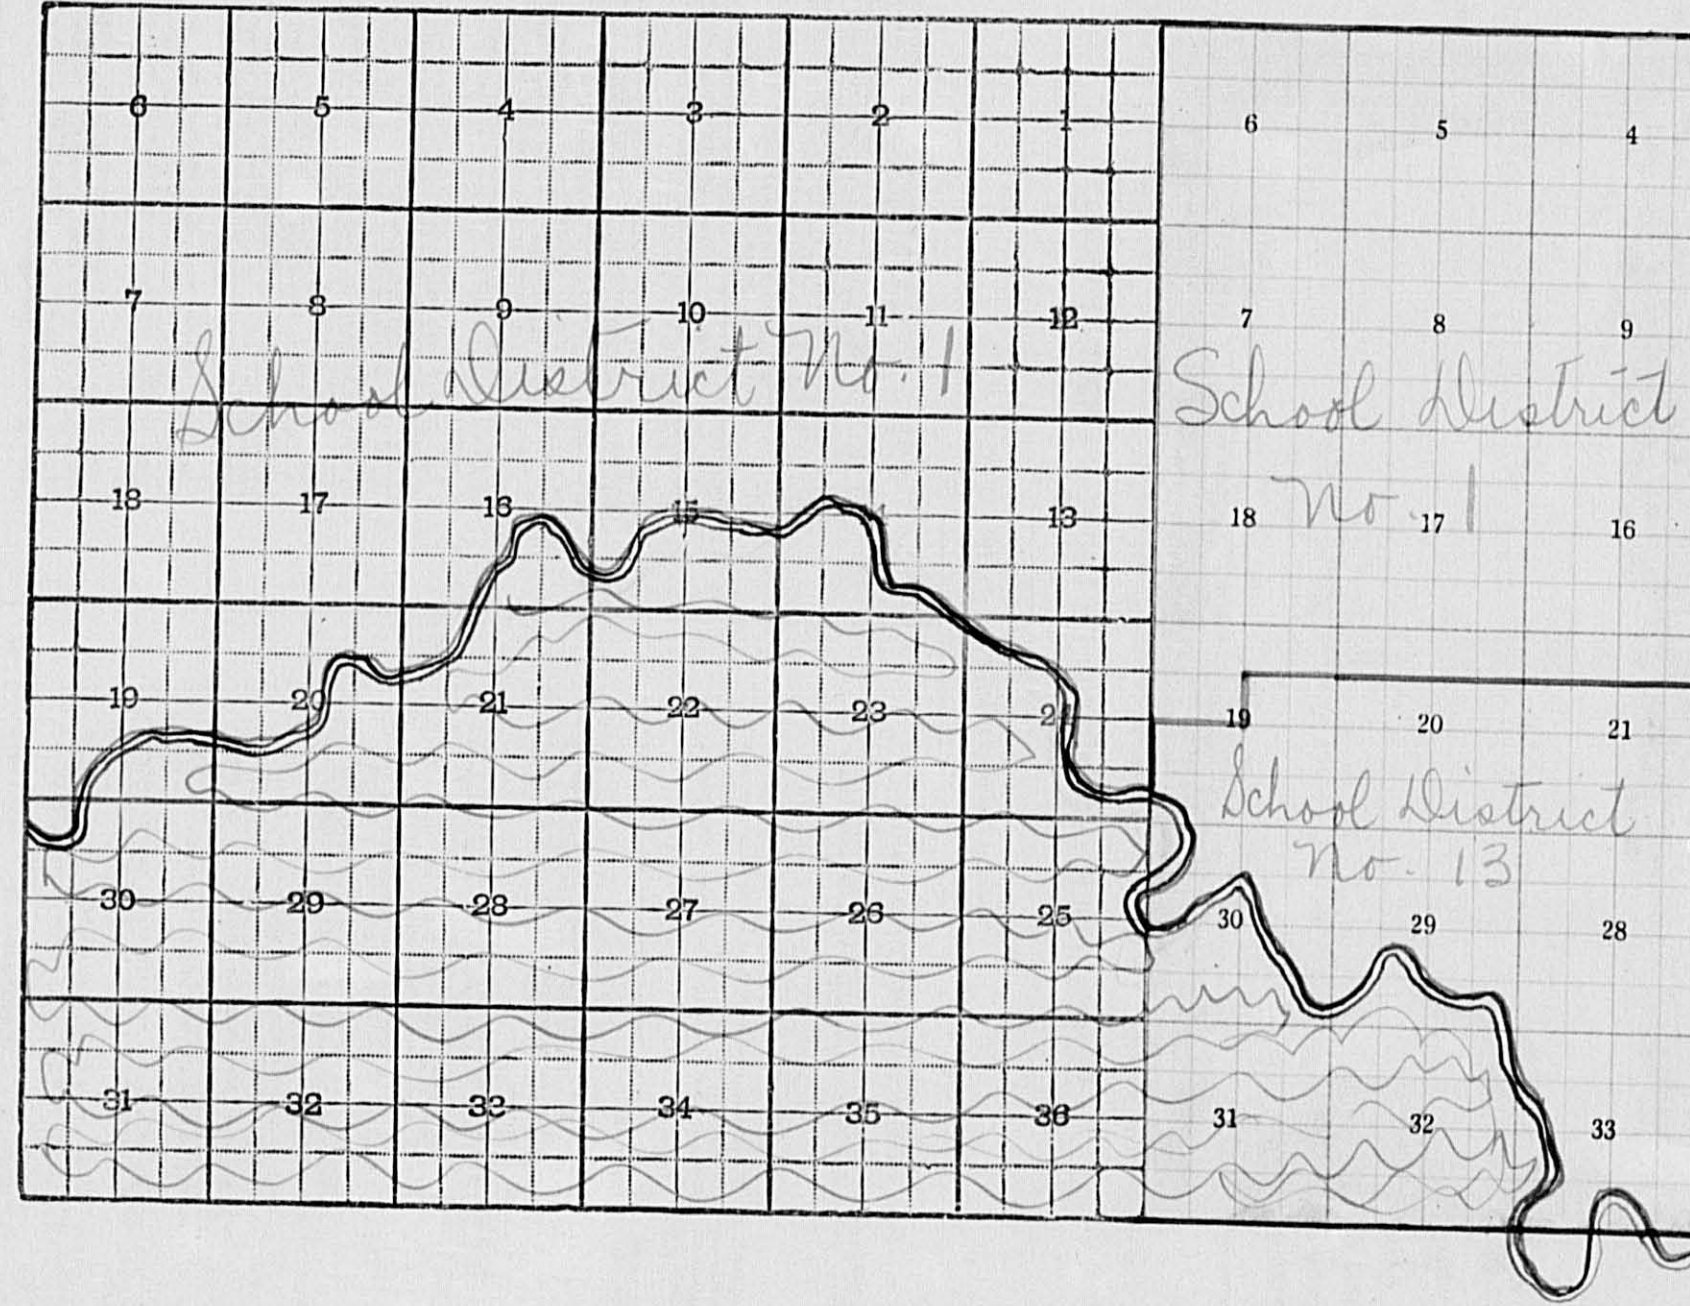 6 5 4 3 2 1 6 5 4
7 8 9 10 11 12 7 8 9
School District No. 1
School District
No. 1
18 17 16 15 13 18 17 16
19 20 21 22 23 19 20 21
School District
No. 13
30 29 28 27 26 25 30 29 28
31 32 33 34 35 36 31 32 33